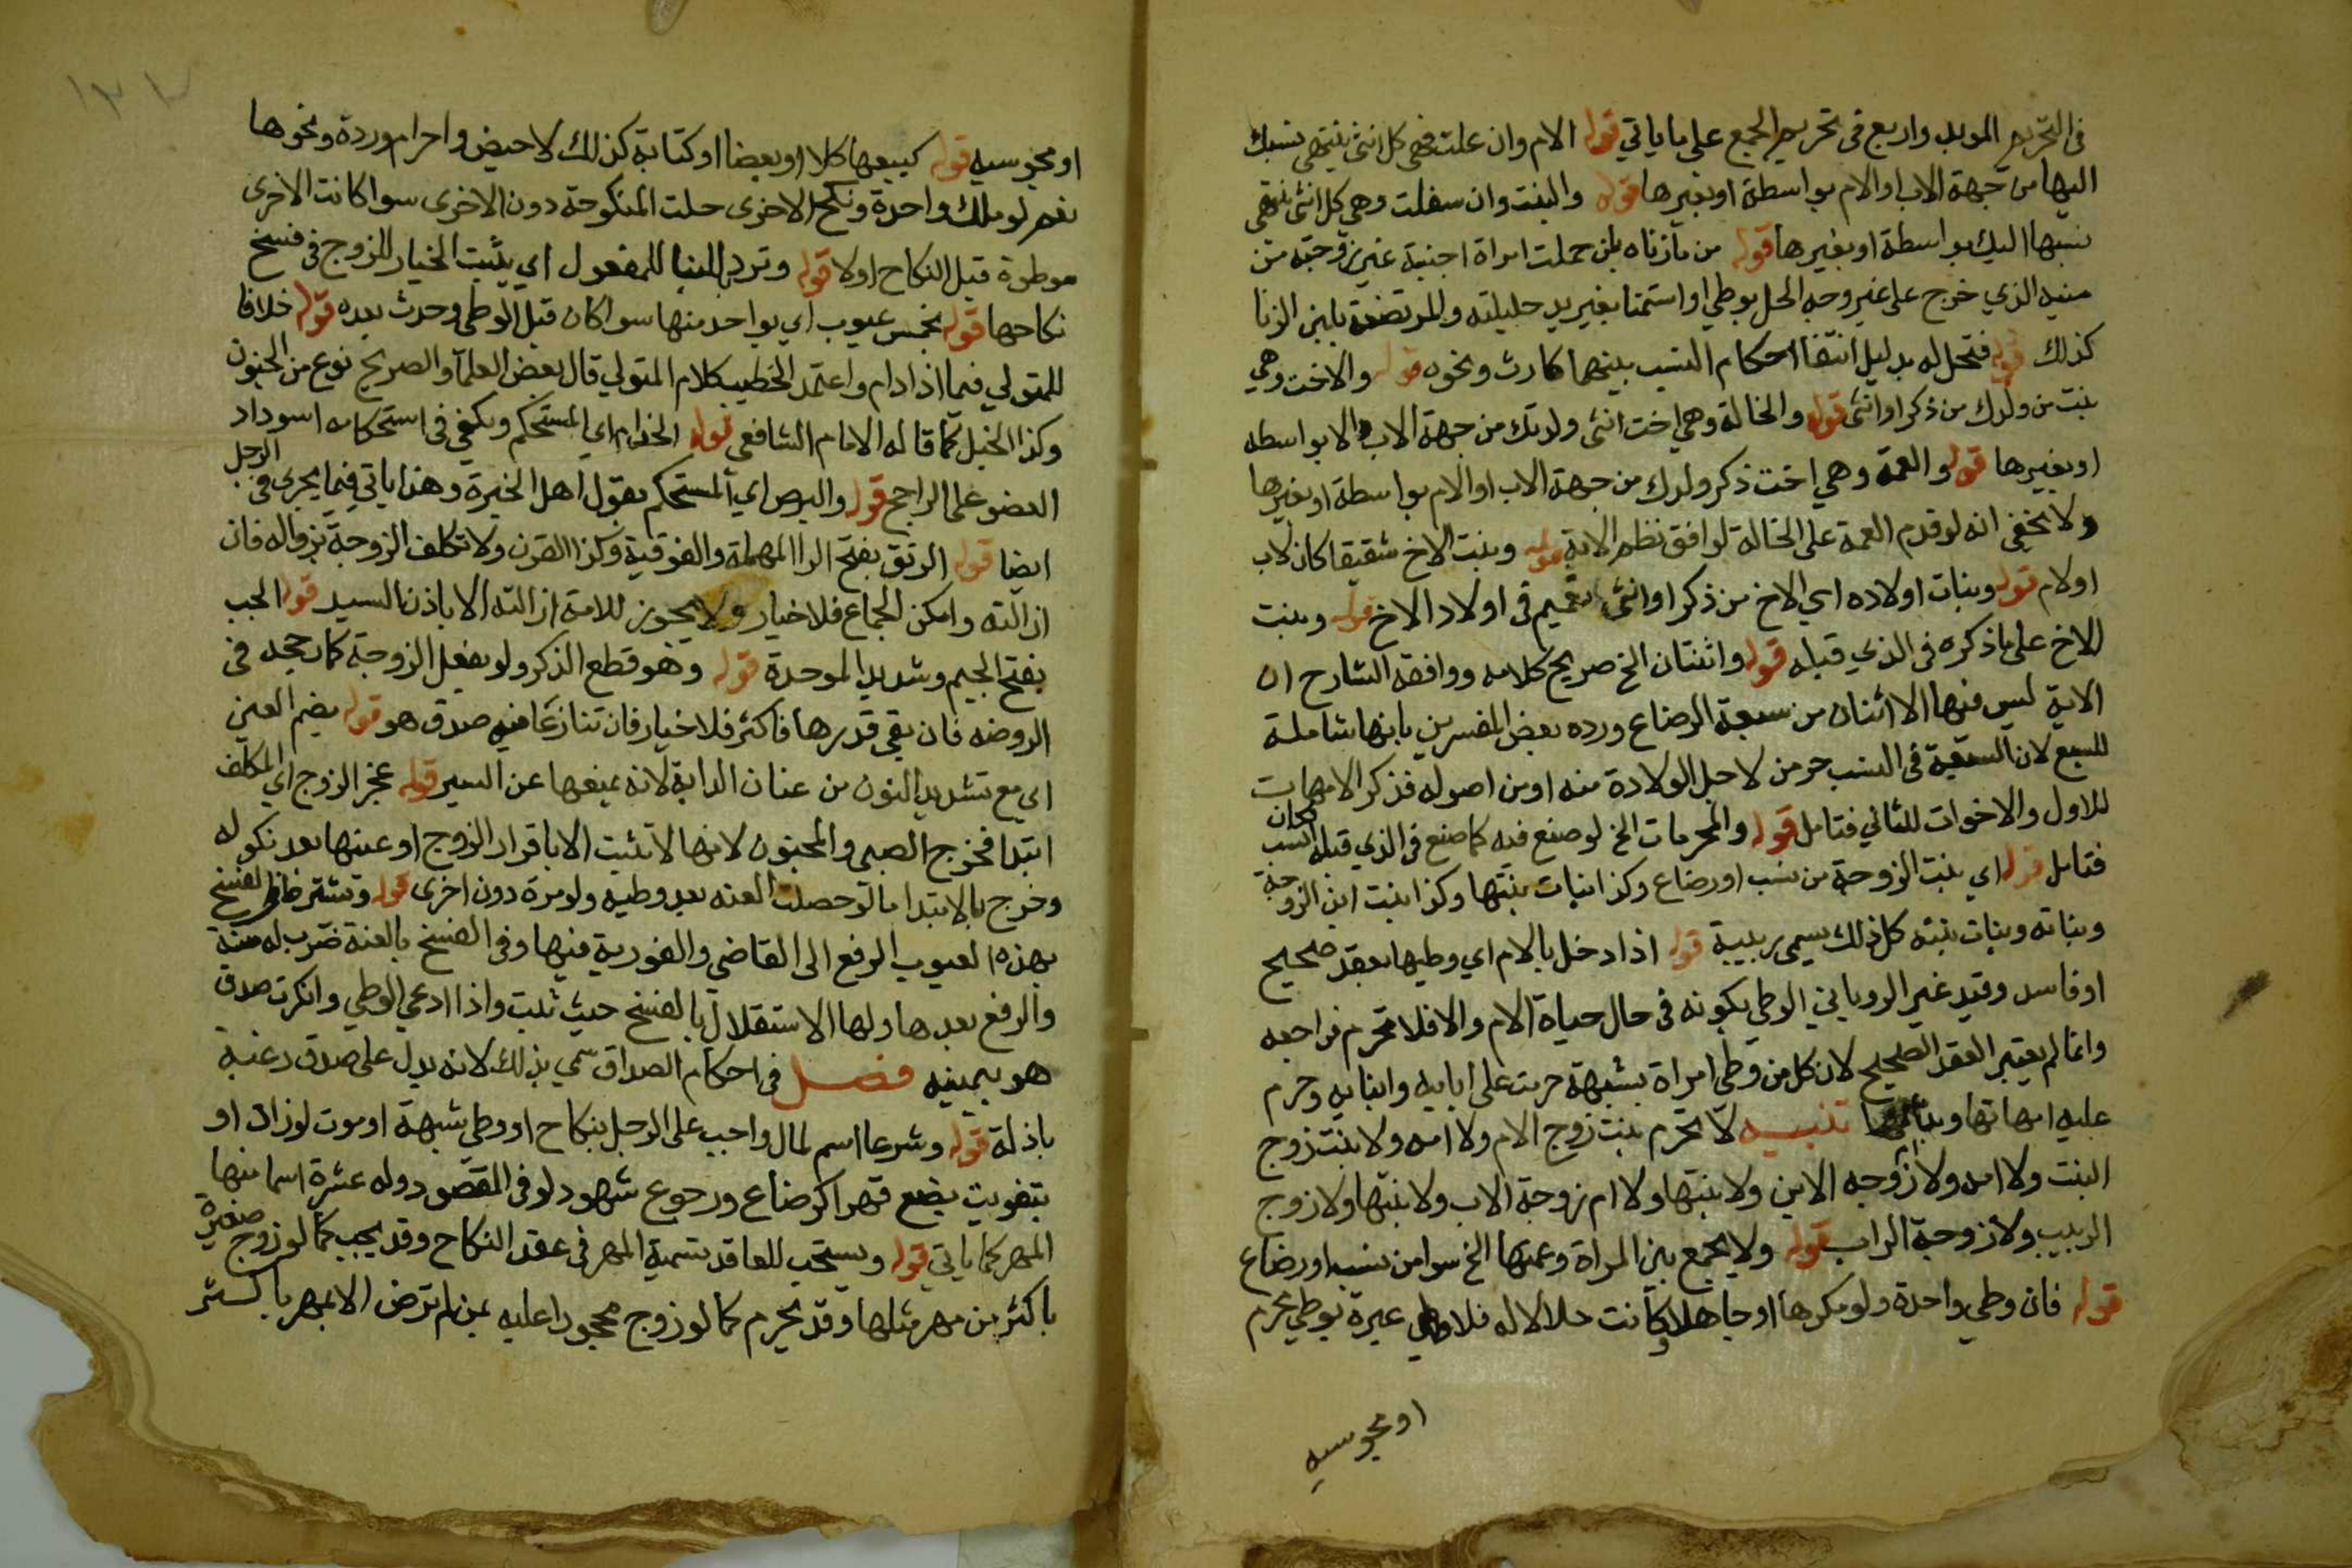 في التحريم الموبد واربع في تحريم الجمع على ما ياتي قوله الام وان علت فهي كل انثى ينتهي نسبك
اليها من جهة الاب او الام بواسطة او بغيرها قوله والبنت وان سفلت وهي كل انثى ينتهي
نسبها اليك بواسطة او بغيرها قوله من ما زناه بان حملت امراة اجنبية غير زوجته من
منيه الذي خرج على غير وجه الحل بوطي او استمنا بغير يد حليلته والمرتضعة بلبن الزنا
كذلك قوله فتحل له بدليل انتفا احكام النسب بينهما كارث ونحوه قوله والاخت وهي
بنت من ولدك من ذكر او انثى قوله والخالة وهي اخت انثى ولدتك من جهة الاب والا بواسطه
او بغيرها قوله والعمة وهي اخت ذكر ولدك من جهة الاب او الام بواسطة او بغيرها
ولا يخفي انه لو قدم العمة على الخالة لوافق نظم الاية قوله وبنت الاخ شقيقا كان لاب
اولام قوله وبنات اولاده اي الاخ من ذكر او انثى تعميم في اولاد الاخ قوله وبنت
الاخ على ما ذكره في الذي قبله قوله واثنتان الخ صريح كلامه ووافقه الشارح ان
الاية ليس فيها الا اثنان من سبعة الرضاع ورده بعض المفسرين بانها شاملة
للسبع لان السبعة في النسب حرمن لاجل الولادة منه او من اصوله فذكر الامهات
للاول والاخوات للثاني فتامل قوله والمحرمات الخ لو صنع فيه كما صنع في الذي قبله لكان انسب
فتامل قوله اي بنت الزوجة من نسب او رضاع وكذا بنات بنتها وكذا بنت ابن الزوجة
وبناته وبنات بنته كل ذلك يسمى ربيبة قوله اذا دخل بالام اي وطيها بعقد صحيح
او فاسد وقيد غير الروياني الوطي بكونه في حال حياة الام والا فلا تحرم فراجعه
وانما لم يعتبر العقد الصحيح لان كل من وطي امراة بشبهة حرمت على ابايه وابنايه وحرم
عليه امهاتها وبناتها تنبيه لا تحرم بنت زوج الام ولا امه ولا بنت زوج
البنت ولا امه ولا ام زوجه الابن ولا بنتها ولا ام زوجة الاب ولا بنتها ولا زوج
الربيب ولا زوجة الراب قوله ولا يجمع بين المراة وعمتها الخ سوا من نسب او رضاع
قوله فان وطي واحدة ولو مكرها او جاهلا وكانت حلالا له فلا وطي غيره بوطي محرم
او مجوسيه
١٣٧
او مجوسيه قوله كبيعها كلا او بعضا او كتابة كذلك لا حيض واحرام وردة ونحوها
نعم لو ملك واحدة ونكح الاخرى حلت المنكوحة دون الاخرى سوا كانت الاخرى
موطوة قبل النكاح اولا قوله وترد بالبنا للمفعول اي يثبت الخيار للزوج في فسخ
نكاحها قوله بخمس عيوب اي بواحد منها سوا كان قبل الوطي وحدث بعده قوله خلافا
للمتولي فيما اذا دام واعتمد الخطيب كلام المتولي قال بعض العلما والصريح نوع من الجنون
وكذا الخبل كما قاله الامام الشافعي قوله الجذام اي المستحكم ويكفي في استحكامه اسوداد
العضو على الراجح قوله والبرص اي المستحكم بقول اهل الخبرة وهذا ياتي فيما يجرى في الرجل
ايضا قوله الرتق بفتح الرا المهملة والفوقية وكذا القرن ولا تكلف الزوجة بزواله فان
ازالته وامكن الجماع فلا خيار ولا يجوز للامة ازالته الا باذن السيد قوله الجب
بفتح الجيم وشديد الموحدة قوله وهو قطع الذكر ولو بفعل الزوجة كما رجحه في
الروضه فان بقي قدرها فاكثر فلا خيار فان تنازعا فيه صدق هو قوله بضم العين
اي مع تشديد النون من عنان الدابة لانه يمنعها عن السير قوله عجز الزوج اي المكلف
ابتدا فخرج الصبي والمجنون لانها لا تثبت الا باقرار الزوج او عينها بعد نكوله
وخرج بالابتدا ما لو حصلت العنه بعد وطيه ولو مرة دون اخرى قوله ويشترط في الفسخ
بهذه العيوب الرفع الى القاضي والفورية فيها وفي الفسخ بالعنة ضرب له سنة
والرفع بعدها ولها الاستقلال بالفسخ حيث ثبت واذا ادعى الوطي وانكرت صدق
هو بيمينه فصل في احكام الصداق سمي بذلك لانه يدل على صدق رغبة
باذله قوله وشرعا اسم لمال واجب على الرجل بنكاح او وطي شبهة او موت لوزان او
بتفويت بضع قهرا كرضاع ورجوع شهود لو في المقصود وله عشرة اسما منها
المهر كما ياتي قوله ويستحب للعاقد تسمية المهر في عقد النكاح وقد يجب كما لو زوج صغيرة
باكثر من مهر مثلها وقد يحرم كما لو زوج محجورا عليه بمن لم ترض الا بمهر باكثر